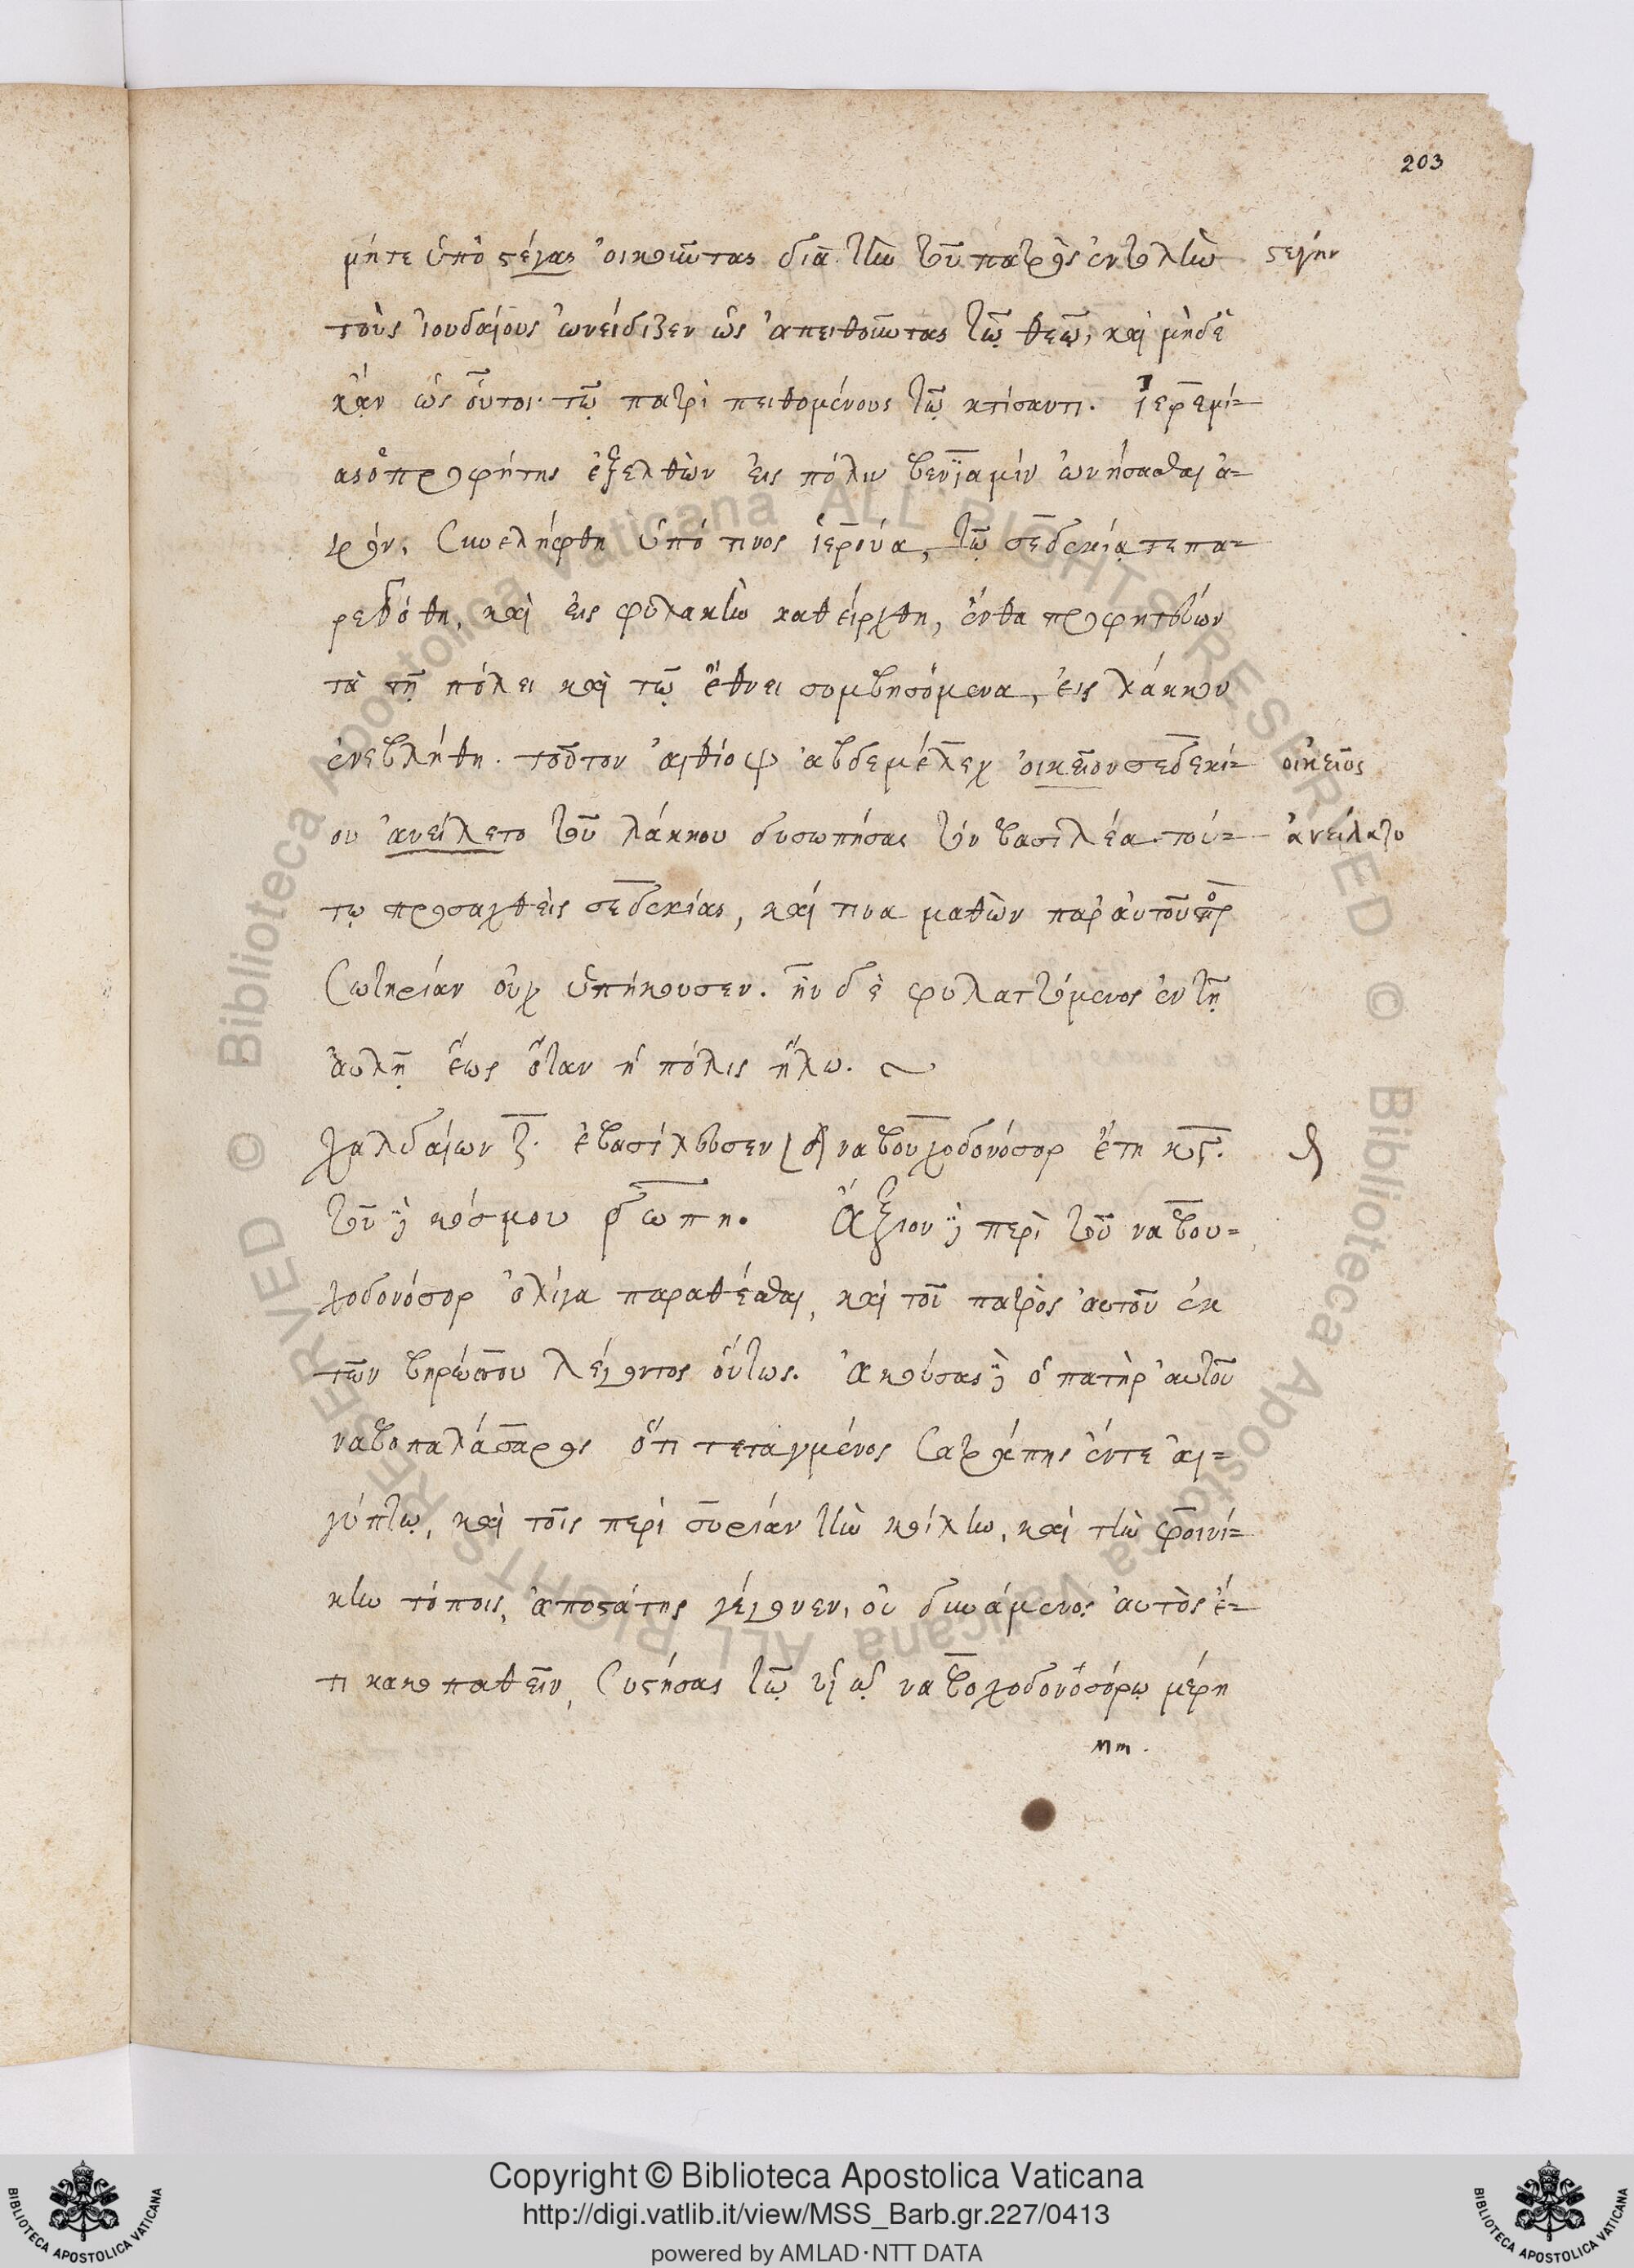 203
μήτε ὑπὸ στέγας οἰκοῦντας διὰ τὴν τοῦ πατρὸς ἐντολὴν στέγην
τοὺς ἰουδαίους ὠνείδιζεν ὡς ἀπειθοῦντας τῷ θεῷ, καὶ μηδὲ
κἂν ὡς οὗτοι τῷ πατρὶ πειθομένους τῷ κτίσαντι. Ἱερεμί=
ας ὁ προφήτης ἐξελθὼν εἰς πόλιν βενϊαμὶν ὠνήσασθαι ἀ=
γρὸν, συνελήφθη ὑπό τινος ἱερούα, τῷ σεδεκίᾳ τε πα=
ρεδόθη, καὶ εἰς φυλακὴν καθείρχθη, ἔνθα προφητεύων
τὰ τῇ πόλει καὶ τῷ ἔθνει συμβησόμενα, εἰς λάκκον
ἐνεβλήθη. τοῦτον αἰθίοψ ἀβδεμέλεχ οἰκεῖον σεδεκί= οἰκεῖος
ου ἀνείλετο τοῦ λάκκου δυσωπήσας τὸν βασιλέα. τού= ἀνείλατο
τῳ προσαχθεὶς σεδεκίας, καί τινα μαθὼν παρ' αὐτοῦ πρὸς
σωτηρίαν οὐχ ὑπήκουσεν. ἦν δὲ φυλαττόμενος ἐν τῇ
αὐλῇ ἕως ὅταν ἡ πόλις ἥλω.
χαλδαίων ζ. ἐβασίλευσεν ὁ ναβουχοδονόσορ ἔτη κϛ.
τοῦ δὲ κόσμου ͵δωπη. Ἄξιον δὲ περὶ τοῦ ναβου=
χοδονόσορ ὀλίγα παραθέσθαι, καὶ τοῦ πατρὸς αὐτοῦ ἐκ
τῶν βηρώσσου λέγοντος οὕτως. ἀκούσας δὲ ὁ πατὴρ αὐτοῦ
ναβοπαλάσαρος ὅτι τεταγμένος σατράπης ἔντε αἰ=
γύπτῳ, καὶ τοῖς περὶ συρίαν τὴν κοίλην, καὶ τὴν φοινί=
κην τόποις, ἀποστάτης γέγονεν, οὐ δυνάμενος αὐτὸς ἔ=
τι κακοπαθεῖν, συστήσας τῷ υἱῷ ναβοχοδονοσόρῳ μέρη
Copyright © Biblioteca Apostolica Vaticana
http://digi.vatlib.it/view/MSS_Barb.gr.227/0413
powered by AMLAD·NTT DATA
BIBLIOTECA APOSTOLICA VATICANA
BIBLIOTECA APOSTOLICA VATICANA
© Biblioteca Apostolica Vaticana ALL RIGHTS RESERVED
© Biblioteca Apostolica Vaticana ALL RIGHTS RESERVED